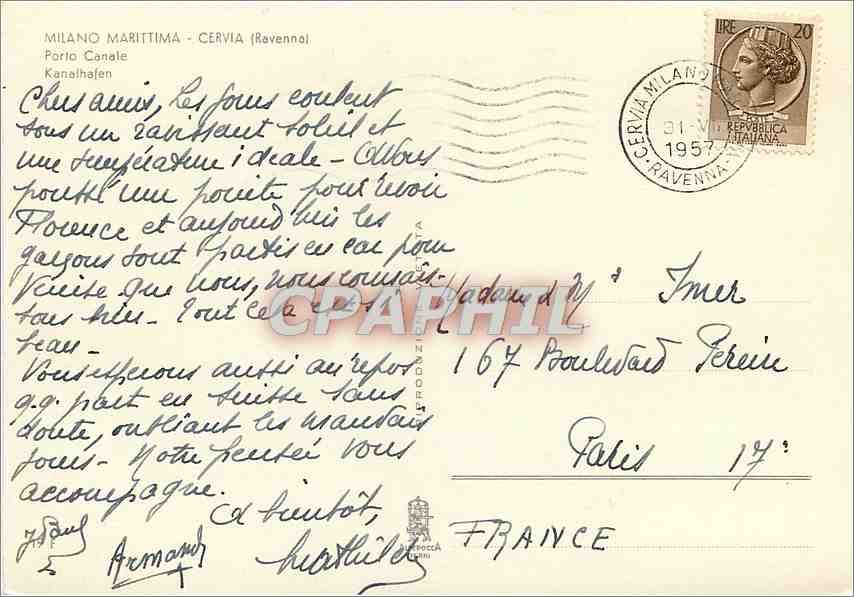 MILANO MARITTIMA - CERVIA (Ravenna)
Porto Canale
Kanalhafen
Chers amis, les jours coulent
sous un ravissant soleil et
une température idéale - Avons
poussé une pointe pour revoir
Florence et aujourd'hui les
garçons sont partis en car pour
Venise que nous, nous connais-
sons bien - Tout cela est si
beau -
Vous espérons aussi au repos
q.q. part en Suisse sans
doute, oubliant les mauvais
jours - Notre pensée vous
accompagne.
A bientôt,
J. Paul
Armand
Mathilde
RIPRODUZIONE VIETATA
CPAPHIL
LIRE 20
REPVBBLICA
ITALIANA
CERVIA MILANO
31-VII
1957
RAVENNA
Madame & Mr Imer
167 Boulevard Pereire
Paris 17e
FRANCE
TERNI